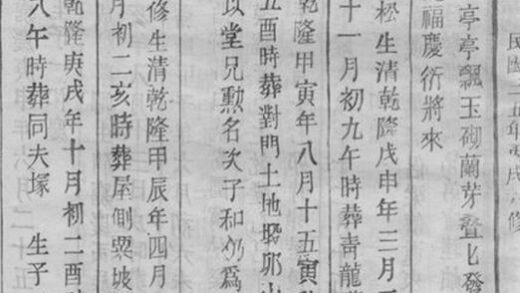 民國五年丙戌修
亭亭飄玉砌蘭芽匕發
福慶衍將來
松生清乾隆戊申年三月
十一月初九午時葬青龍
乾隆甲寅年八月十五寅
五酉時葬對門土地卯山
以堂兄勳名次子和仍爲
修生清乾隆甲辰年四月
月初二亥時葬屋側粟坡
乾隆庚戌年十月初二酉
八午時葬同夫塚 生子